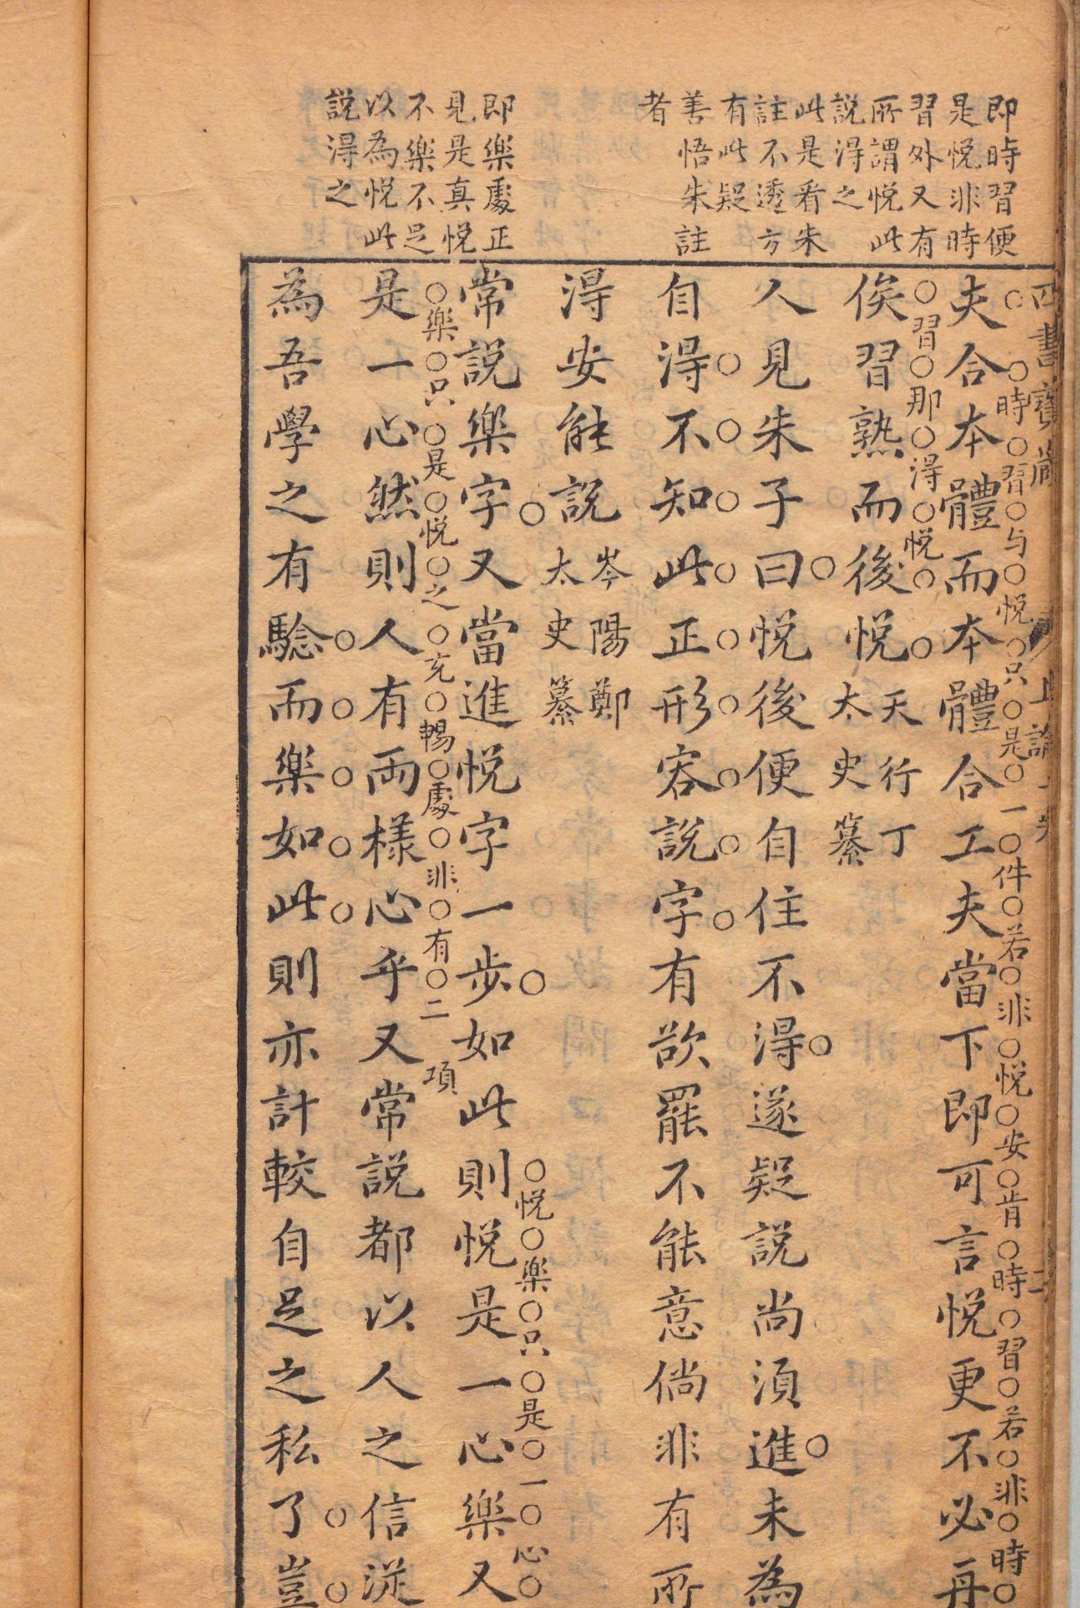 即時習便
是悦非時
習外又有
所謂悦此
説得之
此是看朱
註不透方
有此疑
善悟朱註
者
即樂處正
見是真悦
不樂不足
以為悦此
説得之
四書寶藏
上論
時習与悦只是一件若非悦安肯時習若非時
夫合本體而本體合工夫當下即可言悦更不必再
習那得悦
俟習熟而後悦
天行丁
太史纂
人見朱子曰悦後便自住不得遂疑説尚須進未為
自得不知此正形容説字有欲罷不能意倘非有所
得安能説
岑陽鄭
太史纂
悦樂只是一心
常説樂字又當進悦字一步如此則悦是一心樂又
樂只是悦之充暢處非有二項
是一心然則人有两様心乎又常説都以人之信従
為吾學之有驗而樂如此則亦計較自足之私了豈